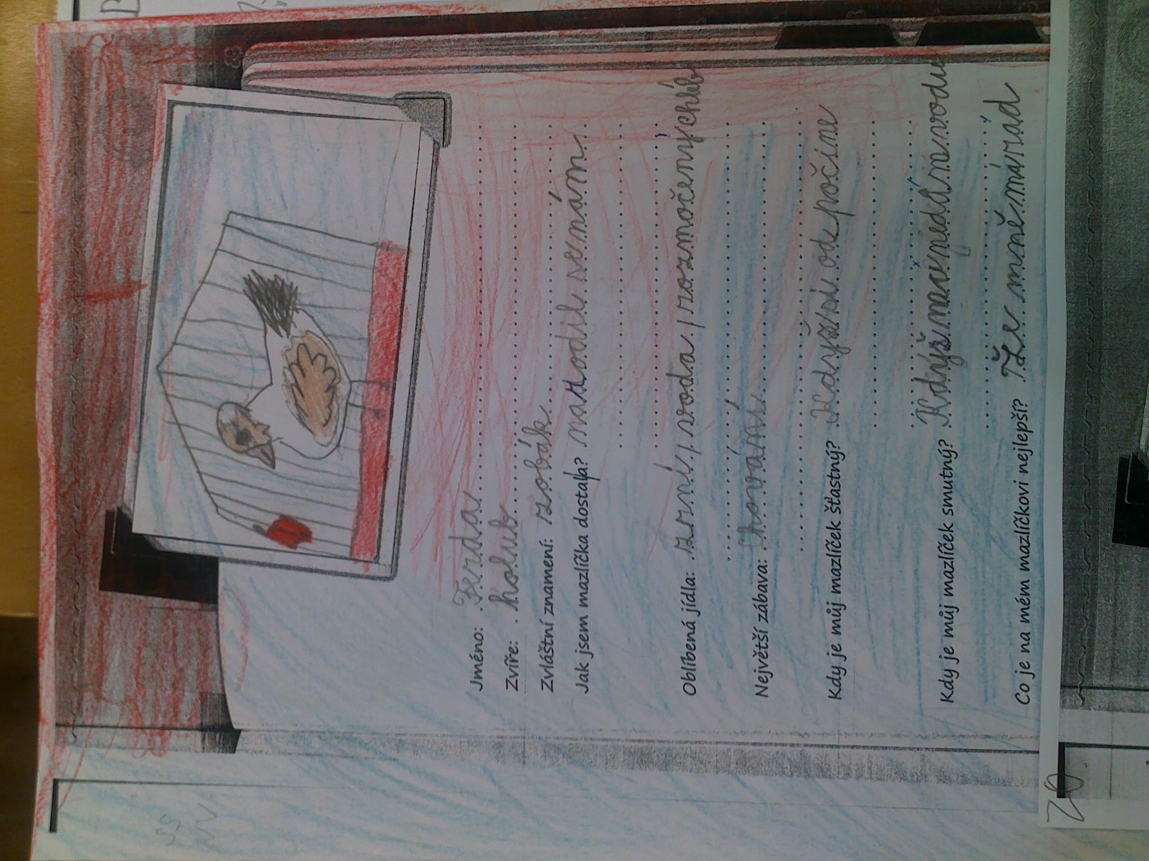 Jméno: Ferda
Zvíře: holub
Zvláštní znamení: zobák
Jak jsem mazlíčka dostala? narodil se nám
Oblíbená jídla: zrní, voda, rozmočený chléb
Největší zábava: chování
Kdy je můj mazlíček šťastný? Když si odpočine
Kdy je můj mazlíček smutný? Když má jídlo ne vodu
Co je na mém mazlíčkovi nejlepší? Že mně má rád
20